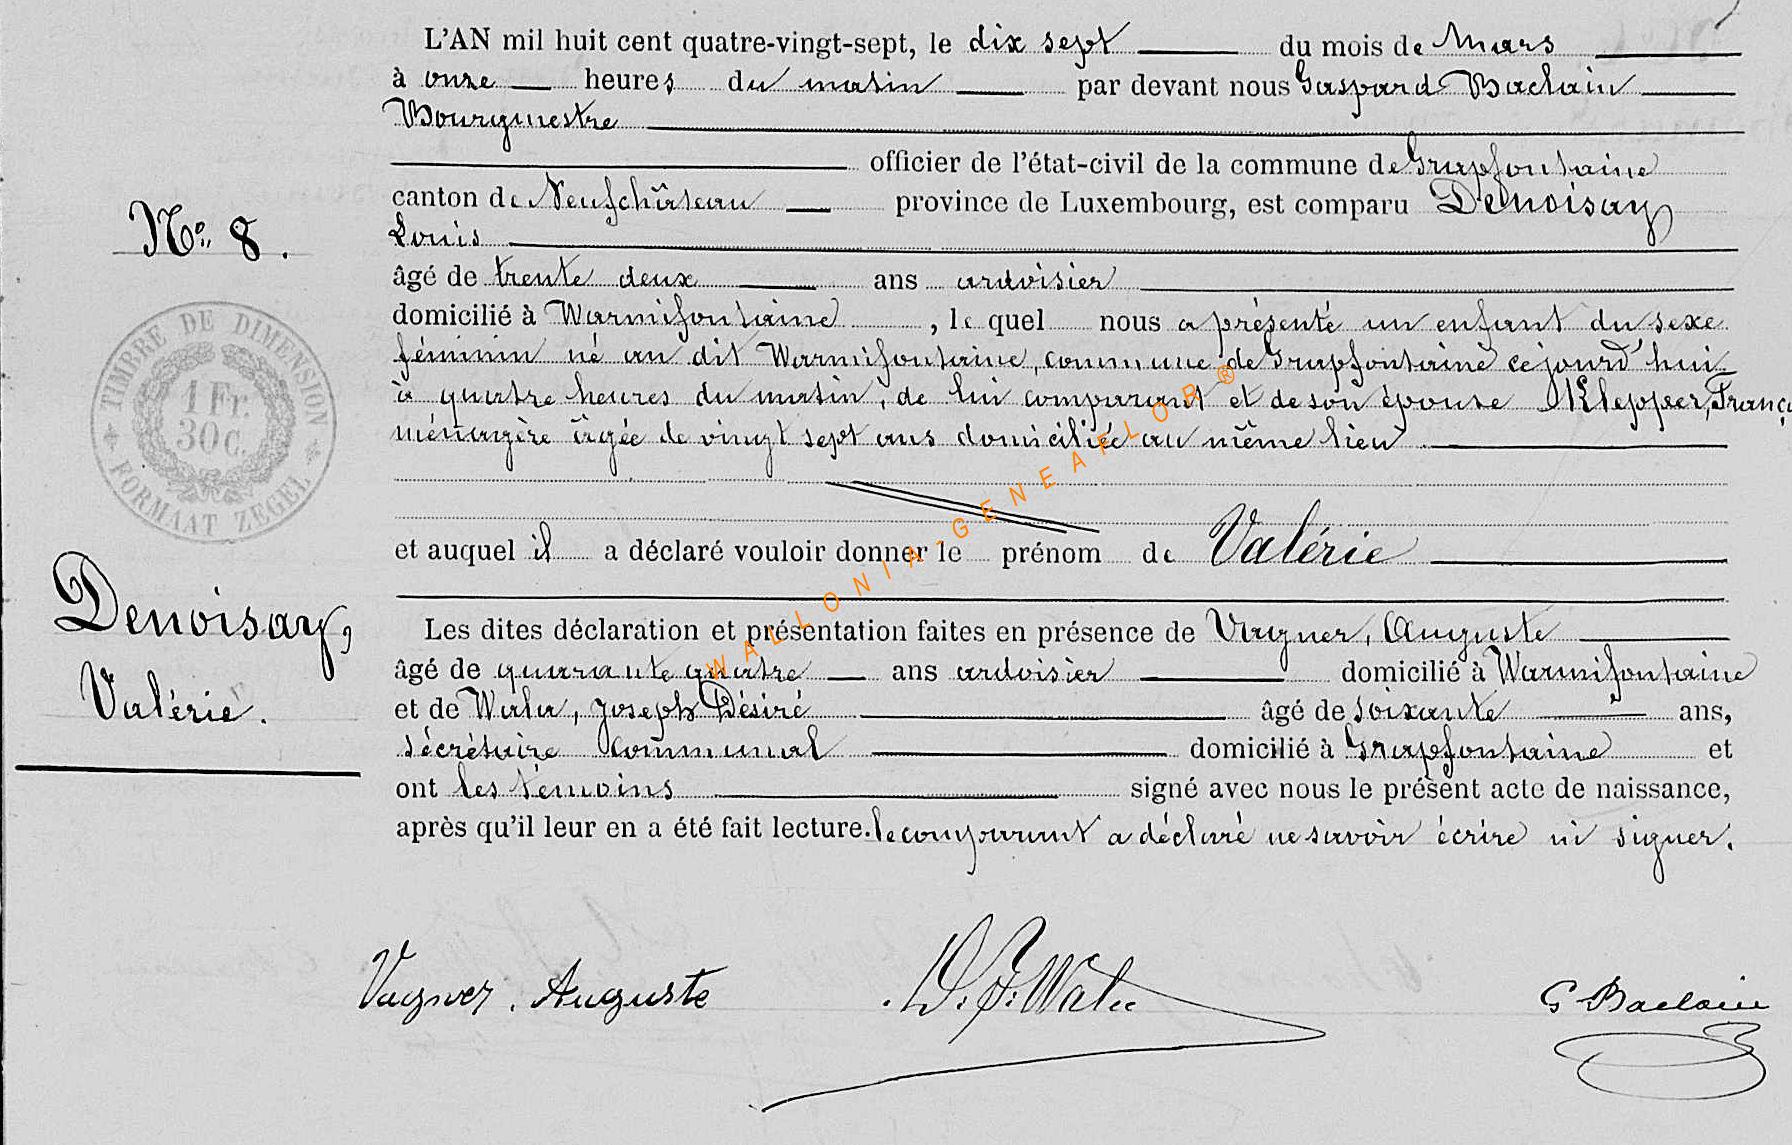 L'AN mil huit cent quatre-vingt-sept, le dix sept du mois de Mars
à onze heures du matin par devant nous Gaspard Baclain
Bourgmestre
officier de l'état-civil de la commune de Grapfontaine
canton de Neufchâteau province de Luxembourg, est comparu Denoisay
Louis
âgé de trente deux ans ardoisier
domicilié à Warmifontaine, le quel nous a présenté un enfant du sexe
féminin né au dit Warmifontaine, commune de Grapfontaine ce jourd'hui
à quatre heures du matin, de lui comparant et de son épouse Klepper, Franç
ménagère âgée de vingt sept ans domiciliée au même lieu
et auquel il a déclaré vouloir donner le prénom de Valérie
Les dites déclaration et présentation faites en présence de Vagner, Auguste
âgé de quarante quatre ans ardoisier domicilié à Warmifontaine
et de Wala, Joseph Désiré âgé de soixante ans,
sécrétaire communal domicilié à Grapfontaine et
ont les témoins signé avec nous le présent acte de naissance,
après qu'il leur en a été fait lecture. le comparant a déclaré ne savoir écrire ni signer.
No 8.
TIMBRE DE DIMENSION
1 Fr.
30 c.
FORMAAT ZEGEL
Denoisay,
Valérie.
WALLONIA-GENEAFLOR ®
Vagner, Auguste
D. J. Wala
G Baclain